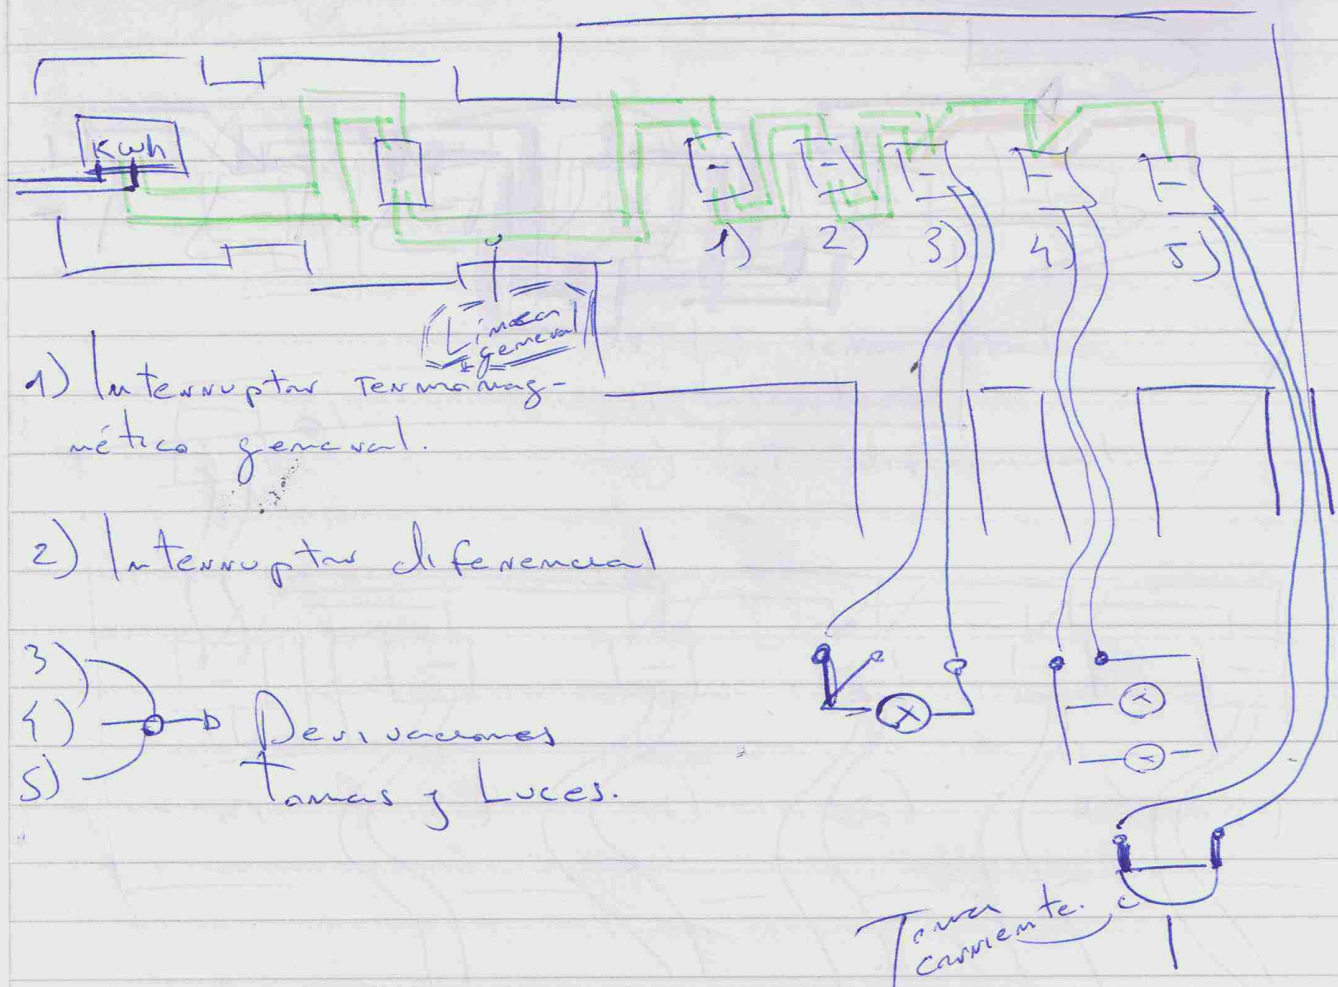 Kwh
1) 2) 3) 4) 5)
Linea
general
1) Interruptor Termomag-
nético general.
2) Interruptor diferencial
3)
4)
5)
Derivaciones
Tomas y Luces.
Toma
corriente.